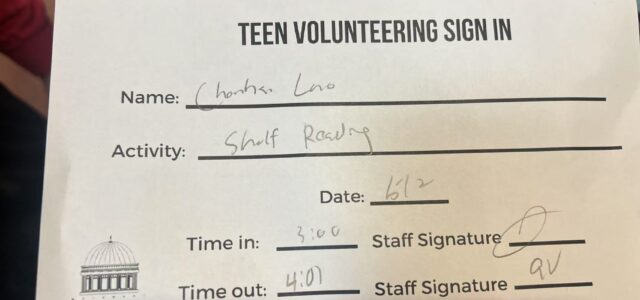 TEEN VOLUNTEERING SIGN IN
Name:
Activity: Shelf Reading
Date:
Time in: 3:00 Staff Signature
Time out: 4:01 Staff Signature